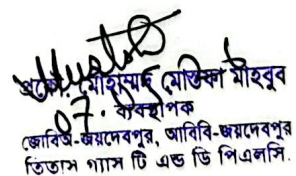 প্রকৌ. মোহাম্মদ মোস্তফা মাহবুব
০৭. ব্যবস্থাপক
জোবিঅ-জয়দেবপুর, আবিবি-জয়দেবপুর
তিতাস গ্যাস টি এন্ড ডি পিএলসি.